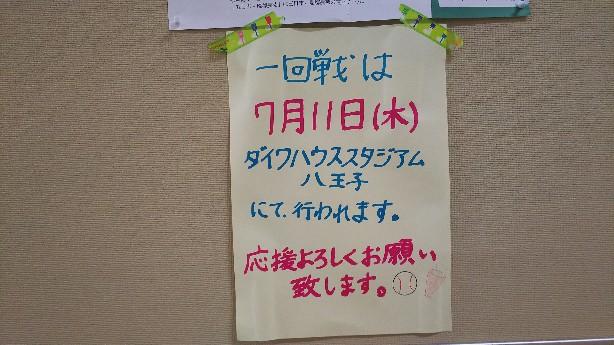 一回戦は
7月11日(木)
ダイワハウススタジアム
八王子
にて、行われます。
応援よろしくお願い
致します。